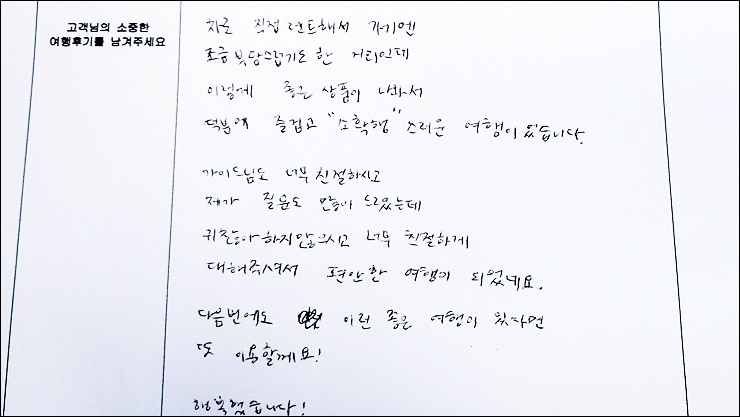 고객님의 소중한
여행후기를 남겨주세요
차로 직접 렌트해서 가기엔
조금 부담스럽기도 한 거리인데
이렇게 좋은 상품이 나와서
덕분에 즐겁고 "소확행"스러운 여행이었습니다.
가이드님도 너무 친절하시고
제가 질문도 많이 드렸는데
귀찮아하지않으시고 너무 친절하게
대해주셔서 편안한 여행이 되었네요.
다음번에도 이런 좋은 여행이 있다면
또 이용할게요!
행복했습니다!